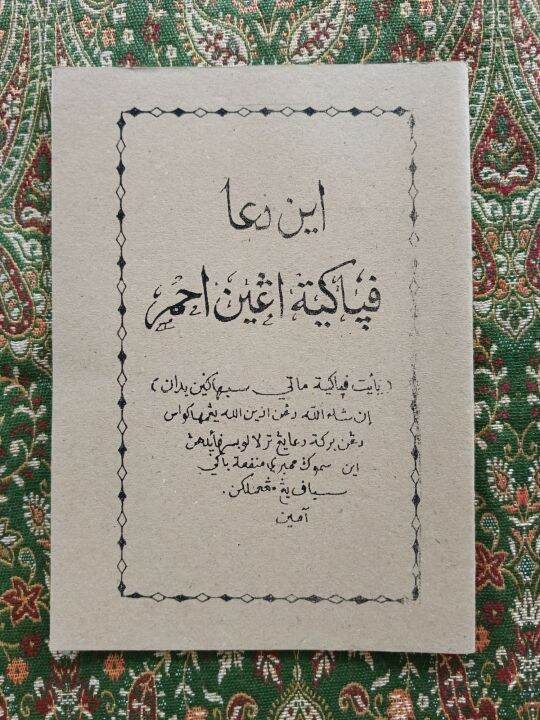 اين دعا
ڤپاكية اڠين احمر
(يأيت ڤپاكية ماتي سبهاكين بدان)
إن شاء الله دڠن اذين الله يڠمهاكواس
دڠن بركة دعايڠ ترلالو بسر فائدهڽ
اين سموك ممبري منفعة باكي
سسياڤ يڠ مڠعملكن.
آمين